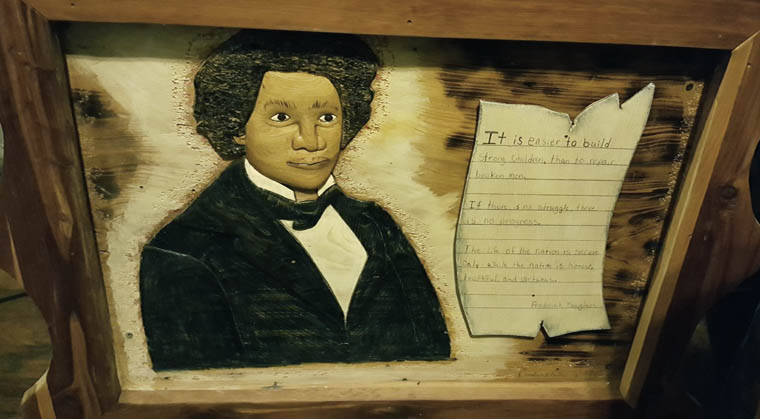 It is easier to build
strong children, than to repair
broken men.
If there is no struggle, there
is no progress.
The life of the nation is secure
only while the nation is honest,
truthful, and virtuous.
Frederick Douglass